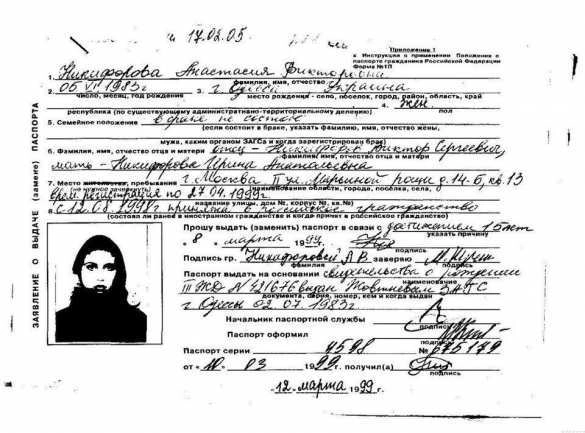 17.02.05
Приложение 1
к Инструкции о применении Положения о
паспорте гражданина Российской Федерации
Форма №1П
ЗАЯВЛЕНИЕ О ВЫДАЧЕ (замене) ПАСПОРТА
1. Никифорова Анастасия Викторовна
фамилия, имя, отчество
2. 05 VII 1983г 3. г Одесса Украина
число, месяц, год рождения место рождения - село, поселок, город, район, область, край
4. жен
республика (по существующему административно-территориальному делению) пол
5. Семейное положение в браке не состою
(если состоит в браке, указать фамилию, имя, отчество жены,
мужа, каким органом ЗАГСа и когда зарегистрирован брак)
6. Фамилия, имя, отчество отца и матери отец - Никифоров Виктор Сергеевич,
фамилия, имя, отчество отца и матери
мать - Никифорова Ирина Анатольевна
7. Место жительства, пребывания г Москва II ул Марьиной рощи д. 14-Б, кв. 13
(не нужное зачеркнуть) наименование области, города, посёлка, села,
врем. регистрация по 27.04.1999г.
название улицы, дом №, корпус №, кв.№)
8. с 12.08.1998г принята в российское гражданство
(состояли ли ранее в иностранном гражданстве и когда принят в российское гражданство)
Прошу выдать (заменить) паспорт в связи с достижением 15 лет
указать причину
"8" марта 1999г.
подпись
Подпись гр. Никифоровой А.В. заверяю
фамилия подпись
Паспорт выдать на основании свидетельства о рождении
наименование
III ЖД № 421676 выдан Жовтневым ЗАГС
документа, серия, номер, кем и когда выдан
г Одессы 02.07.1983г.
Начальник паспортной службы
подпись
Паспорт оформил
подпись
Паспорт серии 4598 № 675179
от "10" 03 1999г. получил(а)
подпись
"12" марта 1999 г.